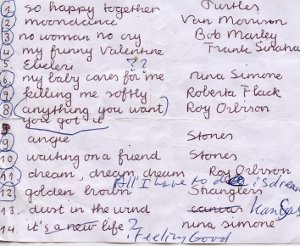 1. so happy together Turtles
2. moondance Van Morrison
3 no woman no cry Bob Marley
4 my funny Valentine Frank Sinatra
5 ??
6 my baby cares for me nina Simone
7 killing me softly Roberta Flack
8 (anything you want) Roy Orbison
you got it
9 angie Stones
10 waiting on a friend Stones
11 dream, dream, dream Roy Orbison
All I have to do is dream
12 golden brown Stranglers
13. dust in the wind Kansas
14. it's a new life? nina simone
Feeling Good